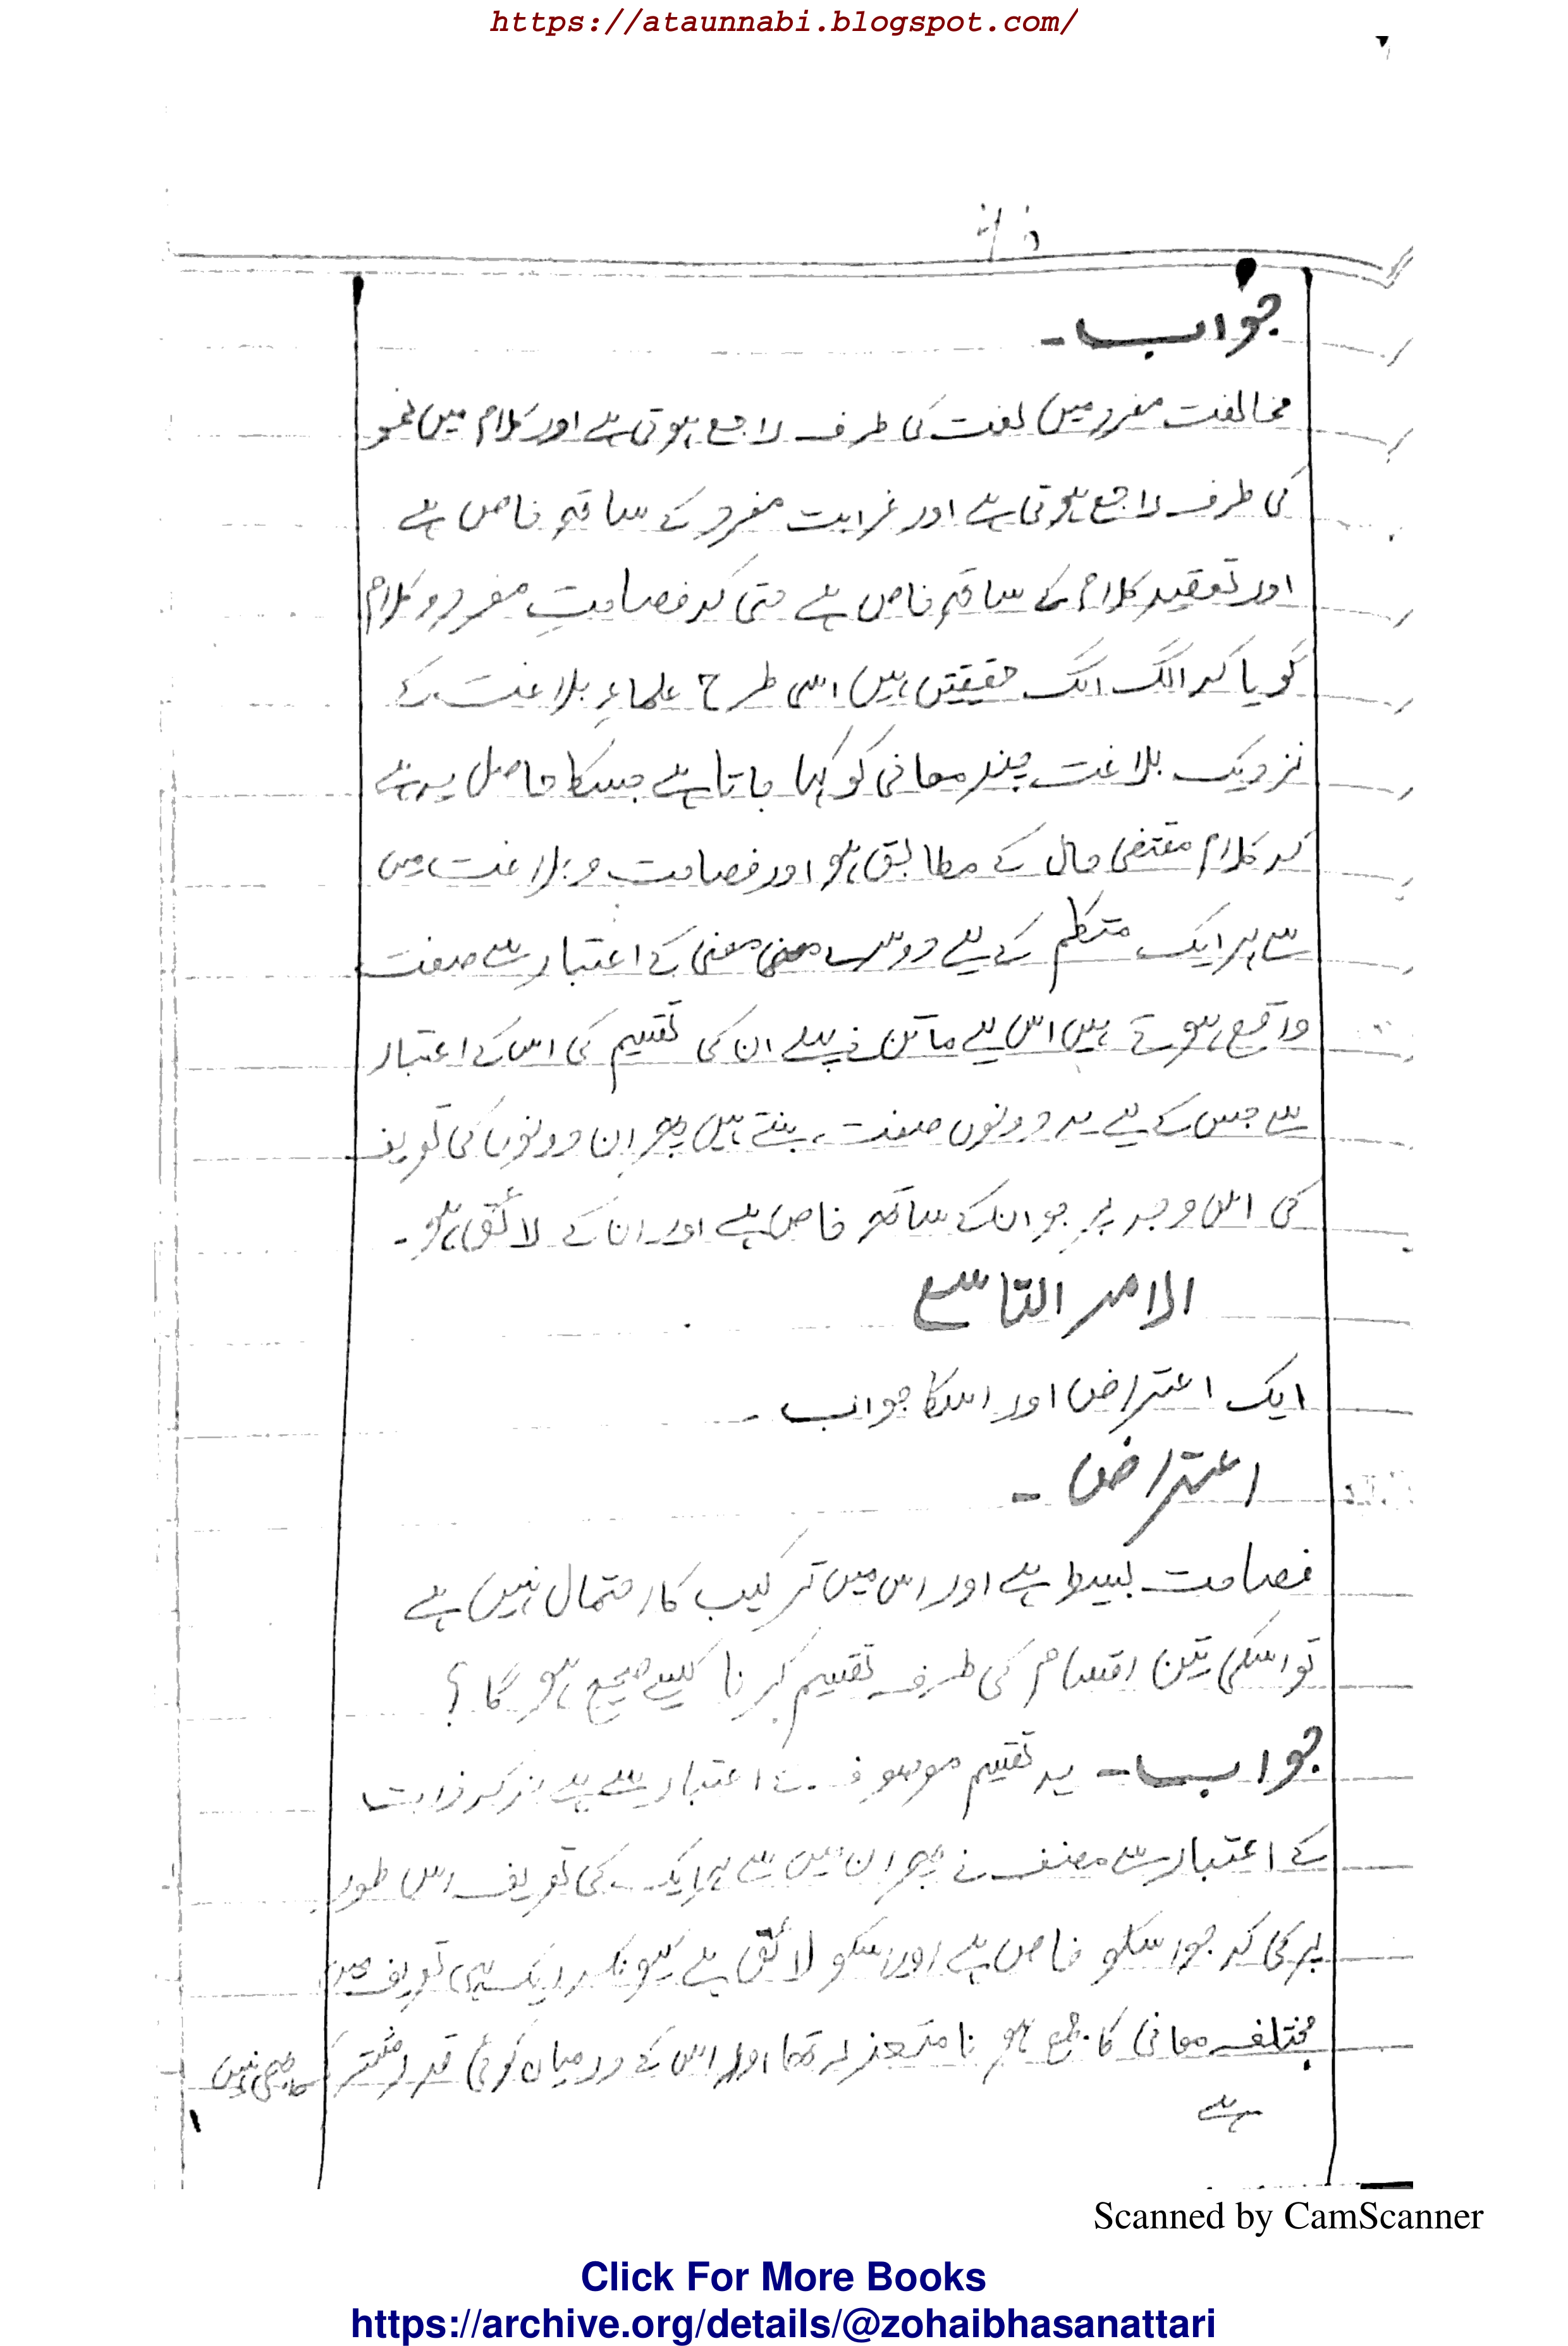 https://ataunnabi.blogspot.com/
جواب۔
مخالفت مفرد میں لغت کی طرف راجع ہوتی ہے اور کلام میں نحو
کی طرف راجع ہوتی ہے اور غرابت مفرد کے ساتھ خاص ہے
اور تعقید کلام کے ساتھ خاص ہے حتی کہ فصاحتِ مفرد و کلام
گویا کہ الگ الگ حقیقتیں ہیں اسی طرح علماءِ بلاغت کے
نزدیک بلاغت چند معانی کو کہا جاتا ہے جسکا حاصل یہ ہے
کہ کلام مقتضی حال کے مطابق ہو اور فصاحت و بلاغت میں
سے ہر ایک متکلم کے لیے دوسرے معنی کے اعتبار سے صفت
واقع ہوتے ہیں اس لیے ماتن نے پہلے ان کی تقسیم کی اس کے اعتبار
سے جس کے لیے یہ دونوں صفت بنتے ہیں پھر ان دونوں کی تعریف
کی اس وجہ پر جو ان کے ساتھ خاص ہے اور ان کے لائق ہو۔
الامر التاسع
ایک اعتراض اور اسکا جواب۔
اعتراض۔
فصاحت بسیط ہے اور اس میں ترکیب کا احتمال نہیں ہے
تو اسکی تین اقسام کی طرف تقسیم کرنا کیسے صحیح ہو گا؟
جواب۔ یہ تقسیم موصوف کے اعتبار سے ہے نہ کہ ذات
کے اعتبار سے مصنف نے پھر ان میں سے ہر ایک کی تعریف اس طور
پر کی کہ جو اسکو خاص ہے اور اسکو لائق ہے کیونکہ ایک ہی تعریف میں
مختلف معانی کا جمع ہونا متعذر تھا اور اس کے درمیان کوئی قدر مشترک بھی نہیں
ہے
Scanned by CamScanner
Click For More Books
https://archive.org/details/@zohaibhasanattari